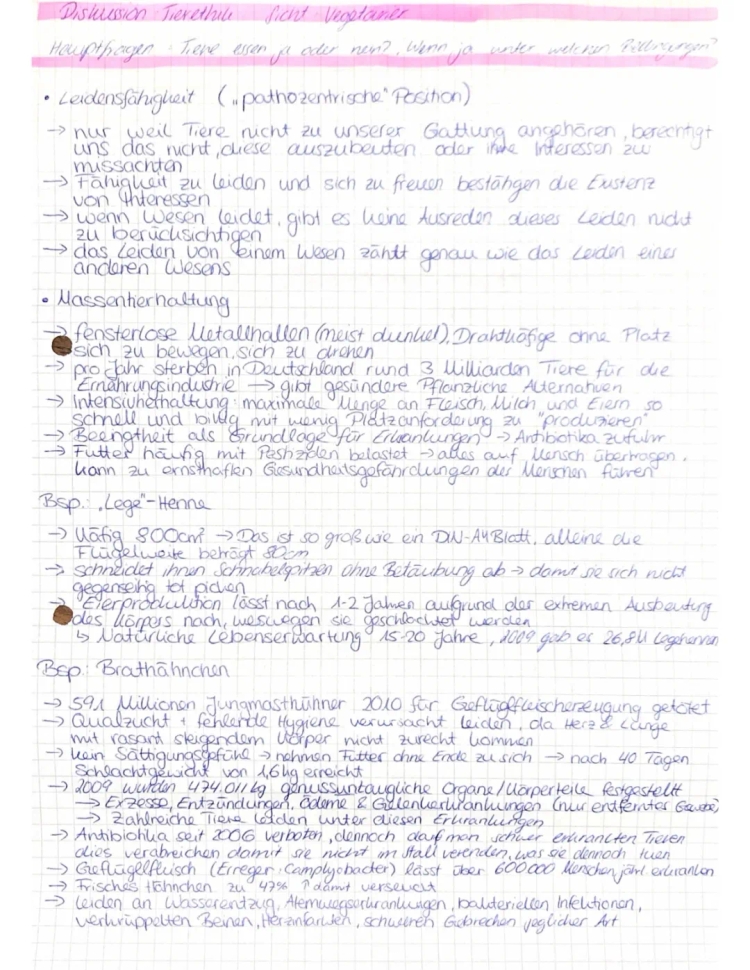 Diskussion Tierethik Sicht Vegetarier
Hauptfragen: Tiere essen ja oder nein? Wenn ja unter welchen Bedingungen?
• Leidensfähigkeit ("pathozentrische" Position)
→ nur weil Tiere nicht zu unserer Gattung angehören, berechtigt
uns das nicht, diese auszubeuten oder ihre Interessen zu
missachten
→ Fähigkeit zu leiden und sich zu freuen bestätigen die Existenz
von Interessen
→ wenn Wesen leidet, gibt es keine Ausreden dieses Leiden nicht
zu berücksichtigen
→ das Leiden von einem Wesen zählt genau wie das Leiden eines
anderen Wesens
• Massentierhaltung
→ fensterlose Metallhallen (meist dunkel), Drahtkäfige ohne Platz
sich zu bewegen, sich zu drehen
→ pro Jahr sterben in Deutschland rund 3 Milliarden Tiere für die
Ernährungsindustrie → gibt gesündere Pflanzliche Alternativen
→ Intensivhaltung: maximale Menge an Fleisch, Milch und Eiern so
schnell und billig mit wenig Platzanforderung zu "produzieren"
→ Beengtheit als Grundlage für Erkrankungen → Antibiotika zufuhr
→ Futter häufig mit Pestiziden belastet → alles auf Mensch übertragen,
kann zu ernsthaften Gesundheitsgefährdungen der Menschen führen
Bsp.: "Lege"-Henne
→ Käfig 800cm² → Das ist so groß wie ein DIN-A4 Blatt, alleine die
Flügelweite beträgt 80cm
→ schneidet ihnen Schnabelspitzen ohne Betäubung ab → damit sie sich nicht
gegenseitig tot picken
→ Eierproduktion lässt nach 1-2 Jahren aufgrund der extremen Ausbeutung
des Körpers nach, weswegen sie geschlachtet werden
↳ Natürliche Lebenserwartung 15-20 Jahre, 2009 gab es 26,8M Legehennen
Bsp.: Brathähnchen
→ 591 Millionen Jungmasthühner 2010 für Geflügelfleischerzeugung getötet
→ Qualzucht + fehlende Hygiene verursacht Leiden, da Herz & Lunge
mit rasant steigendem Körper nicht zurecht kommen
→ kein Sättigungsgefühl → nehmen Futter ohne Ende zu sich → nach 40 Tagen
Schlachtgewicht von 1,6kg erreicht
→ 2009 wurden 474.011kg genussuntaugliche Organe/Körperteile festgestellt
→ Exzesse, Entzündungen, Ödeme & Gelenkerkrankungen (nur entferntes
→ Zahlreiche Tiere leiden unter diesen Erkrankungen
→ Antibiotika seit 2006 verboten, dennoch darf man schwer erkrankten Tieren
dies verabreichen damit sie nicht im Stall verenden, was sie dennoch tuen
→ Geflügelfleisch (Erreger: Camplyobacter) lässt über 600 000 Menschen jährl. erkranken
→ Frisches Hähnchen zu 47% ↑ damit verseucht
→ Leiden an Wasserentzug, Atemwegserkrankungen, bakteriellen Infektionen,
verkrüppelten Beinen, Herzinfarkten, schweren Gebrechen jeglicher Art